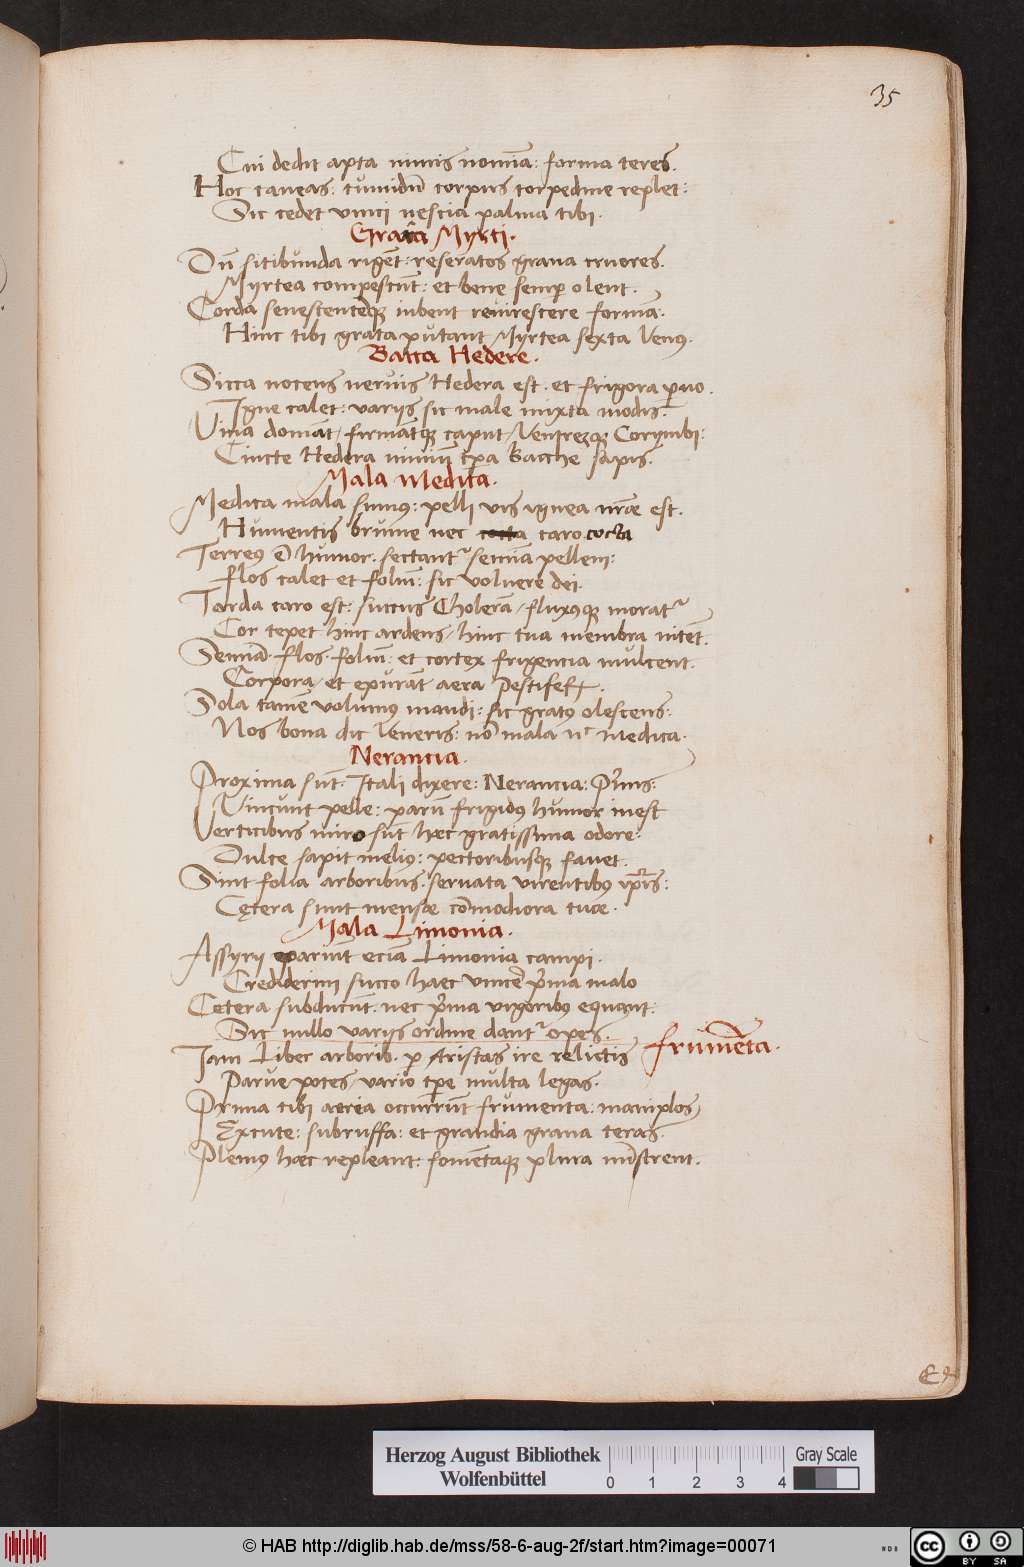 35
Cui dedit apta nimis nomīa: forma teres.
Hoc caueas: tumidū corpus torpedine replet:
Sic cedet vinci nescia palma tibi.
Grana Myrti.
Dū sitibunda rigēt: reseratos grana cruores.
Myrtea compescūt: et bene semp olent.
Corda senescentēq; iubent reuirescere formā:
Hinc tibi grata putant Myrtea sexta Venus.
Bacca Hedere.
Sicca nocens neruis Hedera est. et frigora puo.
Igne calet: varijs sic male mixta modis.
Vina domāt, firmātq; caput, Ventrezq; Corymbi:
Cincte Hedera nimiū tpa Bacche sapis.
Mala Medica.
Medica mala sumus: pelli vis ignea nrāe est.
Humentis brume nec caro cocta
Terreus ē humor. sectant' semīa pellem:
Flos calet et foliū: sic voluere dei.
Tarda caro est: succus Cholerā, fluxusq; morat'
Cor tepet hinc ardens, hinc tua membra nitēt.
Semīa. flos. foliū: et cortex frigencia mulcent.
Corpora, et epurāt aera
Sola tamē volumus mandi: sic gratus olescens:
Nos bona dic Veneris: nō mala nc medica.
Nerancia.
Proxima sūt. Itali dixere: Nerancia: Pimis:
Vincunt pelle: parū frigidus humor inest
Verticibus miro sūt hæc gratissima odore:
Dulce sapit melius: pectoribusq; fauet.
Sint folia arboribus. seruata virentibus ipis:
Cętera sunt mensæ cōmodiora tuæ.
Mala Limonia.
Assyrij pariūt eciā Limonia campi.
Crediderim succo haec vincē pima malo
Cętera subducūt. nec pima vigoribus equant:
Sic nullo varijs ordine dant' opes.
Iam Liber arborib. p Aristas ire relictis
frumēta.
Parue potes, vario tpe multa legas.
Prima tibi aeria occurrūt frumenta: maniplos
Excute: subruffa: et grandia grana teras.
Plenus hæc repleant: fomētaq; plura mīstrent.
Herzog August Bibliothek
Wolfenbüttel
0 1 2 3 4
Gray Scale
© HAB http://diglib.hab.de/mss/58-6-aug-2f/start.htm?image=00071
cc BY SA